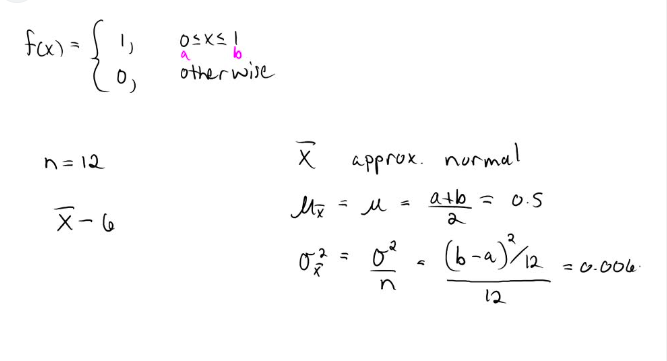 f(x) = { 1, 0 ≤ x ≤ 1
a b
0, otherwise
n = 12
X̄ approx. normal
μ_X̄ = μ = (a+b)/2 = 0.5
X̄ - 6
σ²_X̄ = σ²/n = ((b-a)²/12)/12 = 0.006